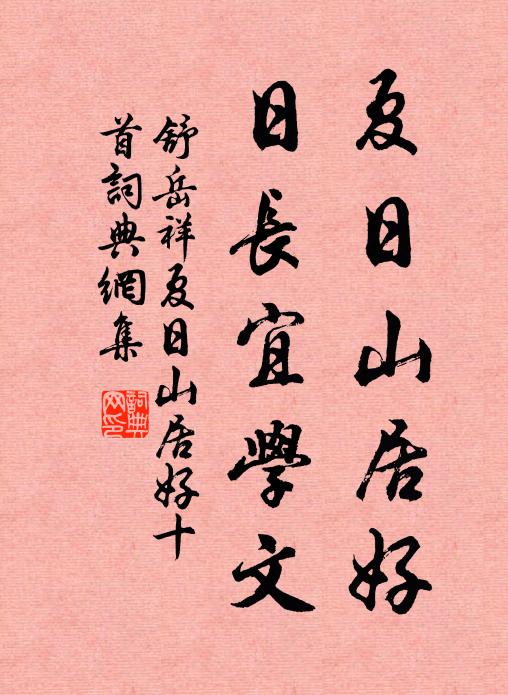 夏日山居好
日長宜學文
舒岳祥夏日山居好十
首詞典網集
詞典
网印